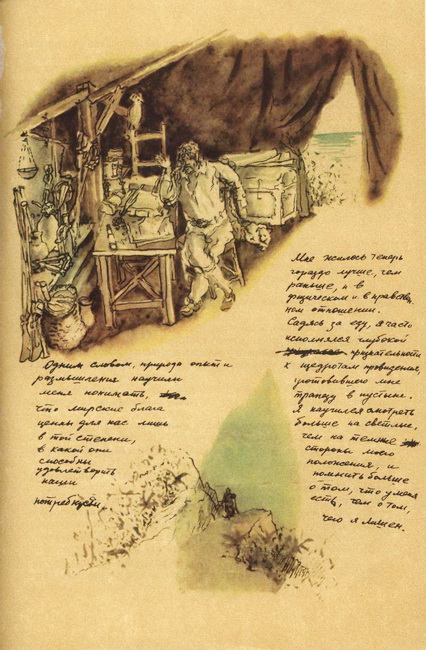 Одним словом, природа опыт и
размышления научили
меня понимать,
что мирские блага
ценны для нас лишь
в той степени,
в какой они
способны
удовлетворить
наши
потребности.
Мне жилось теперь
гораздо лучше, чем
раньше, и в
физическом и в нравствен
ном отношении.
Садясь за еду, я часто
исполнялся глубокой
признательности
к щедротам провидения,
уготовавшего мне
трапезу в пустыне.
Я научился смотреть
больше на светлые,
чем на темные
стороны моего
положения, и
помнить больше
о том, что у меня
есть, чем о том,
чего я лишен.